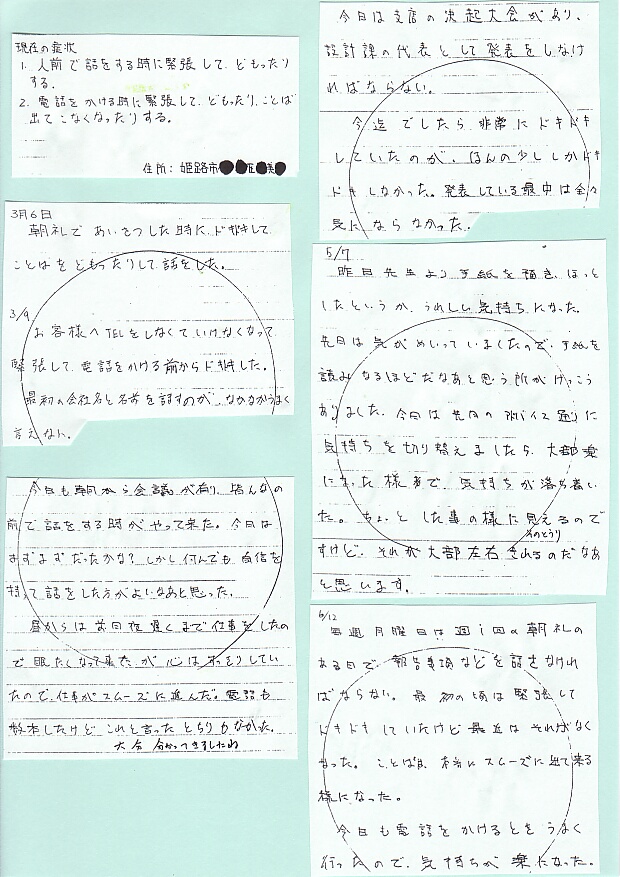 現在の症状
1. 人前で話をする時に緊張して、どもったり
する。
2. 電話をかける時に緊張して、どもったり、ことば
出てこなくなったりする。
住所：姫路市
3月6日
朝礼であいさつした時に、ドキドキして
ことばをどもったりして話をした。
3/9
お客様へTELをしなくていけなくなって
緊張して、電話をかける前からドキドキした。
最初の会社名と名前を話すのが、なかなかうまく
言えない。
今日も朝から会議が有り、皆んなの
前で話をする時がやって来た。今日は
まずまずだったかな？しかし何んでも自信を
持って話をした方がよいなあと思った。
昼からは前日夜遅くまで仕事をしたの
で眠たくなって来たが心はすっきりしてい
たので、仕事がスムーズに進んだ。電話も
数本したけどこれと言ったとちりもなかった。
大分分かってきましたね
今日は支店の決起大会があり、
設計課の代表として発表をしなけ
ればならない。
今迄でしたら非常にドキドキ
していたのが、ほんの少ししかドキ
ドキしなかった。発表している最中は全々
気にならなかった。
5/7
昨日先生より手紙を頂き、ほっと
したというか、うれしい気持ちになった。
先日は気がめいっていましたので、手紙を
読みなるほどだなあと思う所がけっこう
ありました。今日は先日のアドバイス通りに
気持ちを切り替えましたら、大部楽
になった様子で、気持ちが落ち着い
た。ちょっとした事の様に見えるので
すけど、それが大部左右されるのだなあ
そのとうり
と思います。
6/12
毎週月曜日は週1回の朝礼の
ある日で、報告事項などを話さなけれ
ばならない。最初の頃は緊張して
ドキドキしていたけど最近はそれがなく
なった。ことばは、本当にスムーズに出て来る
様になった。
今日も電話をかけるともうまく
行ったので、気持ちが楽になった。